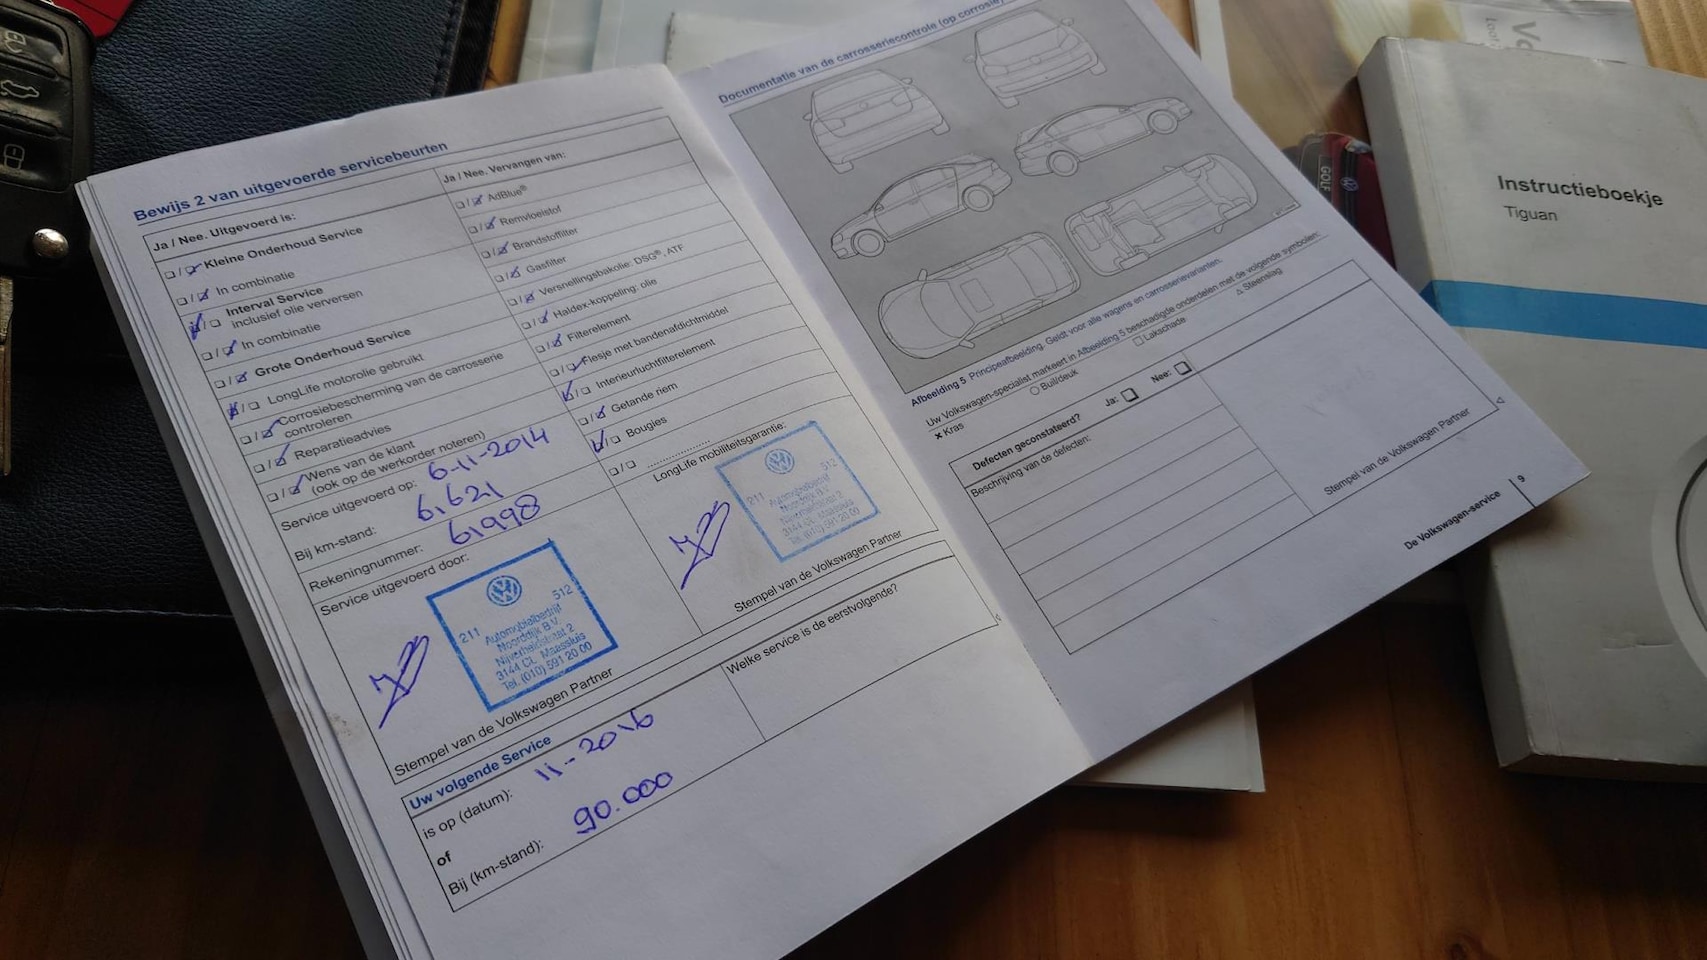 Bewijs 2 van uitgevoerde servicebeurten
Ja / Nee. Uitgevoerd is:
Kleine Onderhoud Service
In combinatie
Interval Service
inclusief olie verversen
In combinatie
Grote Onderhoud Service
LongLife motorolie gebruikt
Corrosiebescherming van de carrosserie
controleren
Reparatieadvies
Wens van de klant
(ook op de werkorder noteren)
Service uitgevoerd op: 6-11-2014
Bij km-stand: 61621
Rekeningnummer: 61998
Service uitgevoerd door:
211 512
Automobielbedrijf
Noorddijk B.V.
Nijverheidstraat 2
3144 CL Maassluis
Tel. (010) 591 20 00
Stempel van de Volkswagen Partner
Ja / Nee. Vervangen van:
AdBlue®
Remvloeistof
Brandstoffilter
Gasfilter
Versnellingsbakolie: DSG®, ATF
Haldex-koppeling: olie
Filterelement
Flesje met bandenafdichtmiddel
Interieurluchtfilterelement
Getande riem
Bougies
LongLife mobiliteitsgarantie:
211 512
Automobielbedrijf
Noorddijk B.V.
Nijverheidstraat 2
3144 CL Maassluis
Tel. (010) 591 20 00
Stempel van de Volkswagen Partner
Uw volgende Service
is op (datum): 11-2016
of
Bij (km-stand): 90.000
Welke service is de eerstvolgende?
Documentatie van de carrosseriecontrole (op corrosie)
Afbeelding 5 Principeafbeelding. Geldt voor alle wagens en carrosserievarianten.
Uw Volkswagen-specialist markeert in Afbeelding 5 beschadigde onderdelen met de volgende symbolen:
× Kras ○ Buil/deuk □ Lakschade △ Steenslag
Defecten geconstateerd? Ja: Nee:
Beschrijving van de defecten:
Stempel van de Volkswagen Partner
De Volkswagen-service 9
Instructieboekje
Tiguan
GOLF